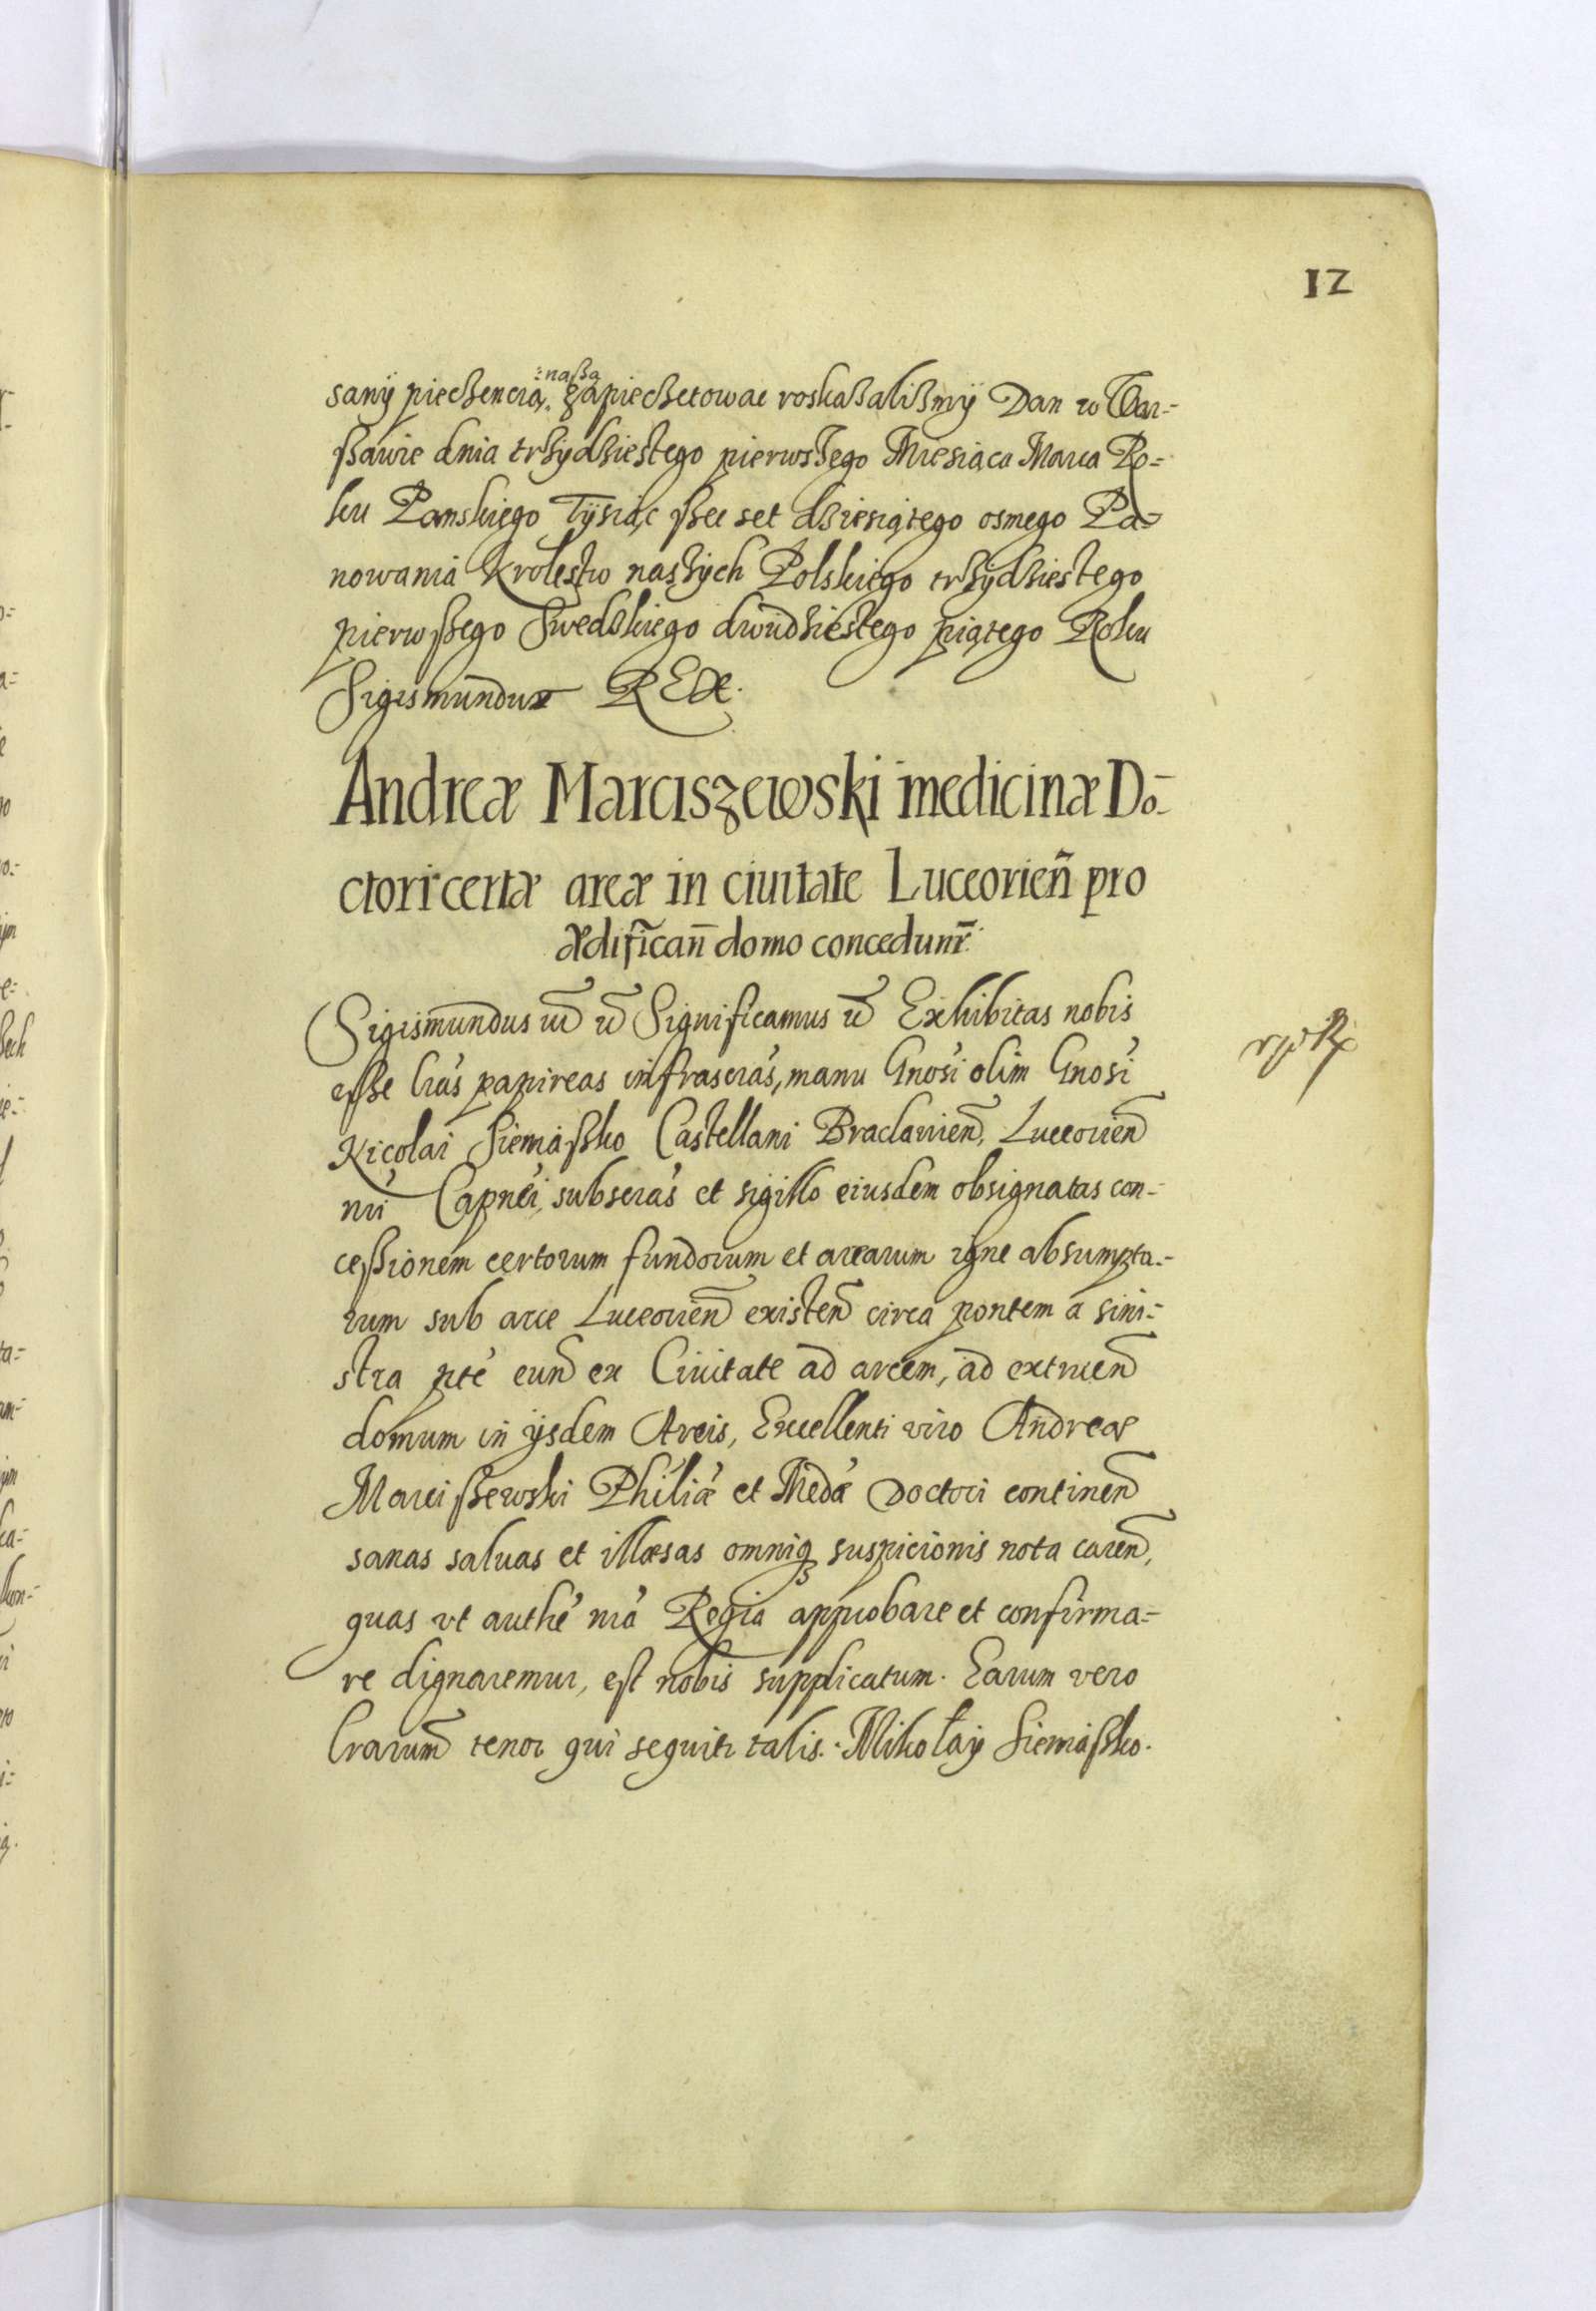 12
sanÿ pieczencią naßa zapieczetowac roskazalismÿ Dan w War=
ßawie dnia trzÿdziestego pierwszego Miesiąca Marca Ro=
ku Panskiego Tÿsiąc ßec set dziesiątego osmego Pa=
nowania Krolestw naszÿch Polskiego trzÿdziestego
pierwßego Swedzkiego dwudziestego piątego Roku
Sigismundus REX.
Andreæ Marciszewski medicinæ Do=
ctori certæ areæ in ciuitate Luceorien̄ pro
ædifican̄ domo concedunr̄.
Sigismundus Significamus Exhibitas nobis
eße lras papireas infrascras, manu Gnosi olim Gnosi
Nicolai Siemaßko Castellani Braclauien̄, Luceorien̄
nri Capnei, subscras et sigillo eiusdem obsignatas con=
ceßionem certorum fundorum et arearum igne absumpta=
rum sub arce Luceorien̄ existen̄ circa pontem a sini=
stra pte eun̄ ex Ciuitate ad arcem, ad extruen̄
domum in ÿsdem Areis, Excellenti viro Andreæ
Marcißewski Philiæ et Medæ Doctori continen̄
sanas saluas et illæsas omniq₃ suspicionis nota caren̄,
quas vt authe nra Regia approbare et confirma=
re dignaremur, est nobis supplicatum. Earum vero
lrarum̄ tenor qui sequitr talis. Mikołaÿ Siemaßko.